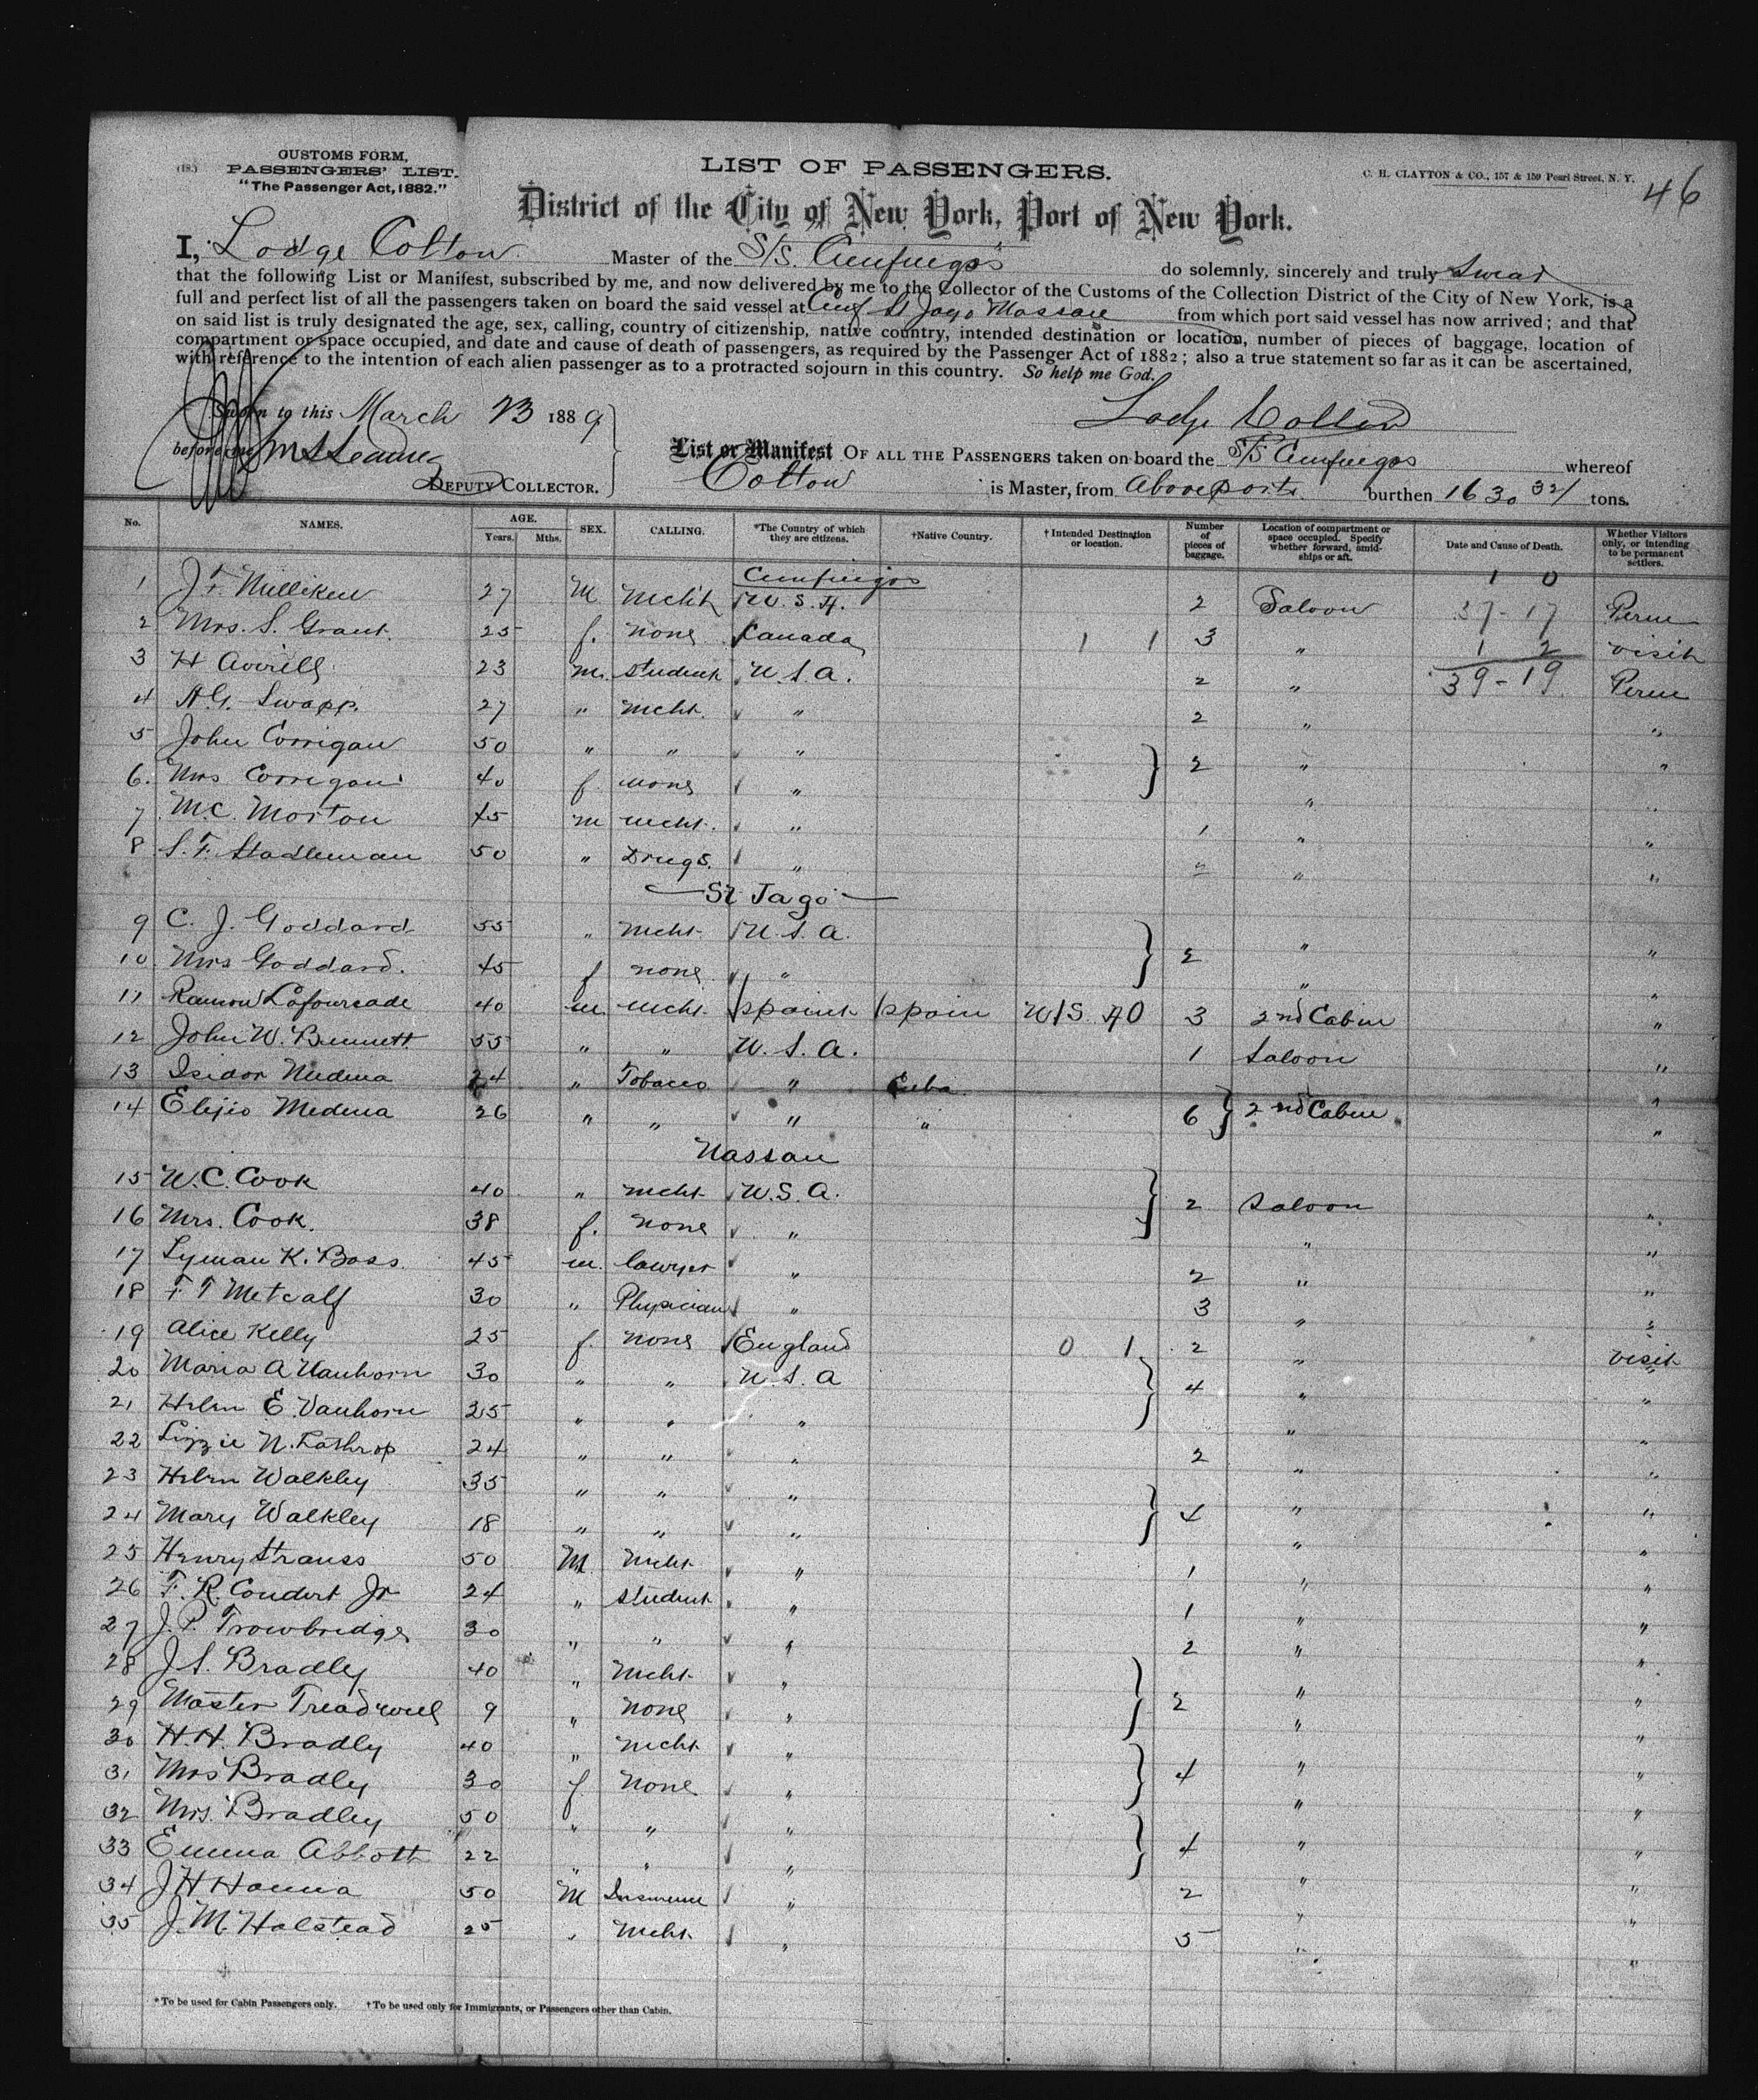 (18.)
CUSTOMS FORM,
PASSENGERS' LIST.
"The Passenger Act, 1882."
LIST OF PASSENGERS.
C. H. CLAYTON & CO., 157 & 159 Pearl Street, N. Y.
46
District of the City of New York, Port of New York.
I, Lodge Colton Master of the S/S. Cienfuegos do solemnly, sincerely and truly swear
that the following List or Manifest, subscribed by me, and now delivered by me to the Collector of the Customs of the Collection District of the City of New York, is a
full and perfect list of all the passengers taken on board the said vessel at Cienf St Jago Nassau from which port said vessel has now arrived; and that
on said list is truly designated the age, sex, calling, country of citizenship, native country, intended destination or location, number of pieces of baggage, location of
compartment or space occupied, and date and cause of death of passengers, as required by the Passenger Act of 1882; also a true statement so far as it can be ascertained,
with reference to the intention of each alien passenger as to a protracted sojourn in this country. So help me God.
Sworn to this March 23 1889
Lodge Colton
before me
DEPUTY COLLECTOR.
List or Manifest OF ALL THE PASSENGERS taken on board the S/S Cienfuegos whereof
Colton is Master, from above ports burthen 1630 32/ tons.
No. NAMES. AGE. Years. Mths. SEX. CALLING. *The Country of which they are citizens. †Native Country. †Intended Destination or location. Number of pieces of baggage. Location of compartment or space occupied. Specify whether forward, amidships or aft. Date and Cause of Death. Whether Visitors only, or intending to be permanent settlers.
Cienfuegos
1 0
1 J. F. Milliken 27 M Mcht U.S.A. 2 Saloon 37-17 Perm
2 Mrs. S. Grant. 25 f. none Canada 1 1 3 " 1 2 visit
3 H Averill 23 m. student U.S.A. 2 " 39-19 Perm
4 A.G. Swapp. 27 " mcht. " 2 " "
5 John Corrigan 50 " " " } 2 " "
6. Mrs Corrigan 40 f none " " "
7 M.C. Morton 45 m mcht. " 1 " "
8 S. F. Stadleman 50 " Drugs. " " " "
St Jago
9 C. J. Goddard 55 " Mcht U.S.A. } 2 " "
10 Mrs Goddard. 45 f none " " "
11 Ramon Lafourcade 40 m mcht. Spain Spain U.S. A 0 3 2nd Cabin "
12 John W. Bennett 55 " " U.S.A. 1 Saloon "
13 Isidor Medina 24 " Tobacco " Cuba "
14 Elijio Medina 26 " " " " 6 } 2nd Cabin "
Nassau
15 W.C. Cook 40 " mcht U.S.A. } 2 Saloon "
16 Mrs. Cook. 38 f. none " " "
17 Lyman K. Bass. 45 m. lawyer " 2 " "
18 F. T Metcalf 30 " Physician " 3 " "
19 Alice Kelly 25 f. none England 0 1 2 " visit
20 Maria A Vanhorn 30 " " U.S.A } 4 " "
21 Helen E. Vanhorn 25 " " " " "
22 Lizzie N. Lathrop 24 " " " 2 " "
23 Helen Walkley 35 " " " } 4 " "
24 Mary Walkley 18 " " " " "
25 Henry Strauss 50 M Mcht " 1 " "
26 F. R. Coudert Jr 24 " student " 1 " "
27 J. P. Trowbridge 30 " " " 2 " "
28 J S. Bradley 40 " Mcht " } 2 " "
29 Master Treadwell 9 " none " " "
30 H. H. Bradley 40 " mcht " } 4 " "
31 Mrs Bradley 30 f none " " "
32 Mrs. Bradley 50 " " " } 4 " "
33 Emma Abbott 22 " " " " "
34 J H Hanna 50 M Insurance " 2 " "
35 J. M. Halstead 25 " Mcht " 5 " "
*To be used for Cabin Passengers only. †To be used only for Immigrants, or Passengers other than Cabin.